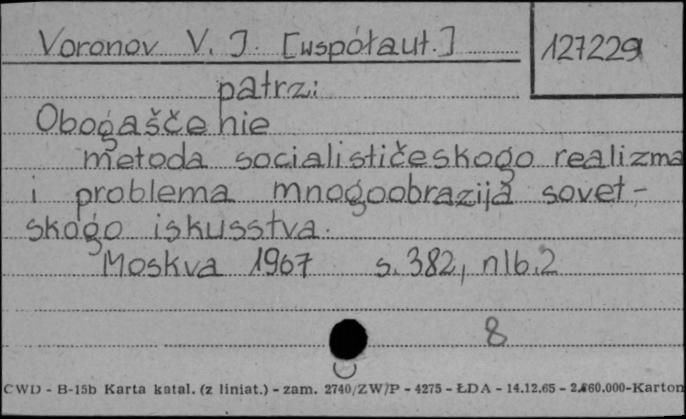 Voronov V. J. [współaut.] 127229
patrz:
Obogaščenie
metoda socialističeskogo realizma
i problema mnogoobrazija sovet-
skogo iskusstva.
Moskva 1967 s. 382, nlb. 2
8
CWD - B-15b Karta katal. (z liniat.) - zam. 2740/ZW/P - 4275 - ŁDA - 14.12.65 - 2.860.000-Karton